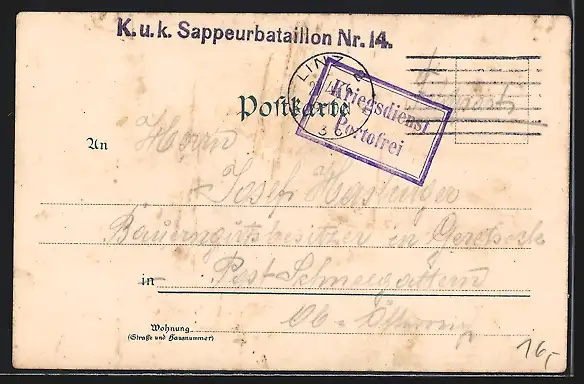 K. u. k. Sappeurbataillon Nr. 14.
LINZ 2
Kriegsdienst
Portofrei
Postkarte
An Herrn
Josef
Bauerngutsbesitzer in
in Post Schneegattern
Ob-Österr
Wohnung
(Straße und Hausnummer)
16,-